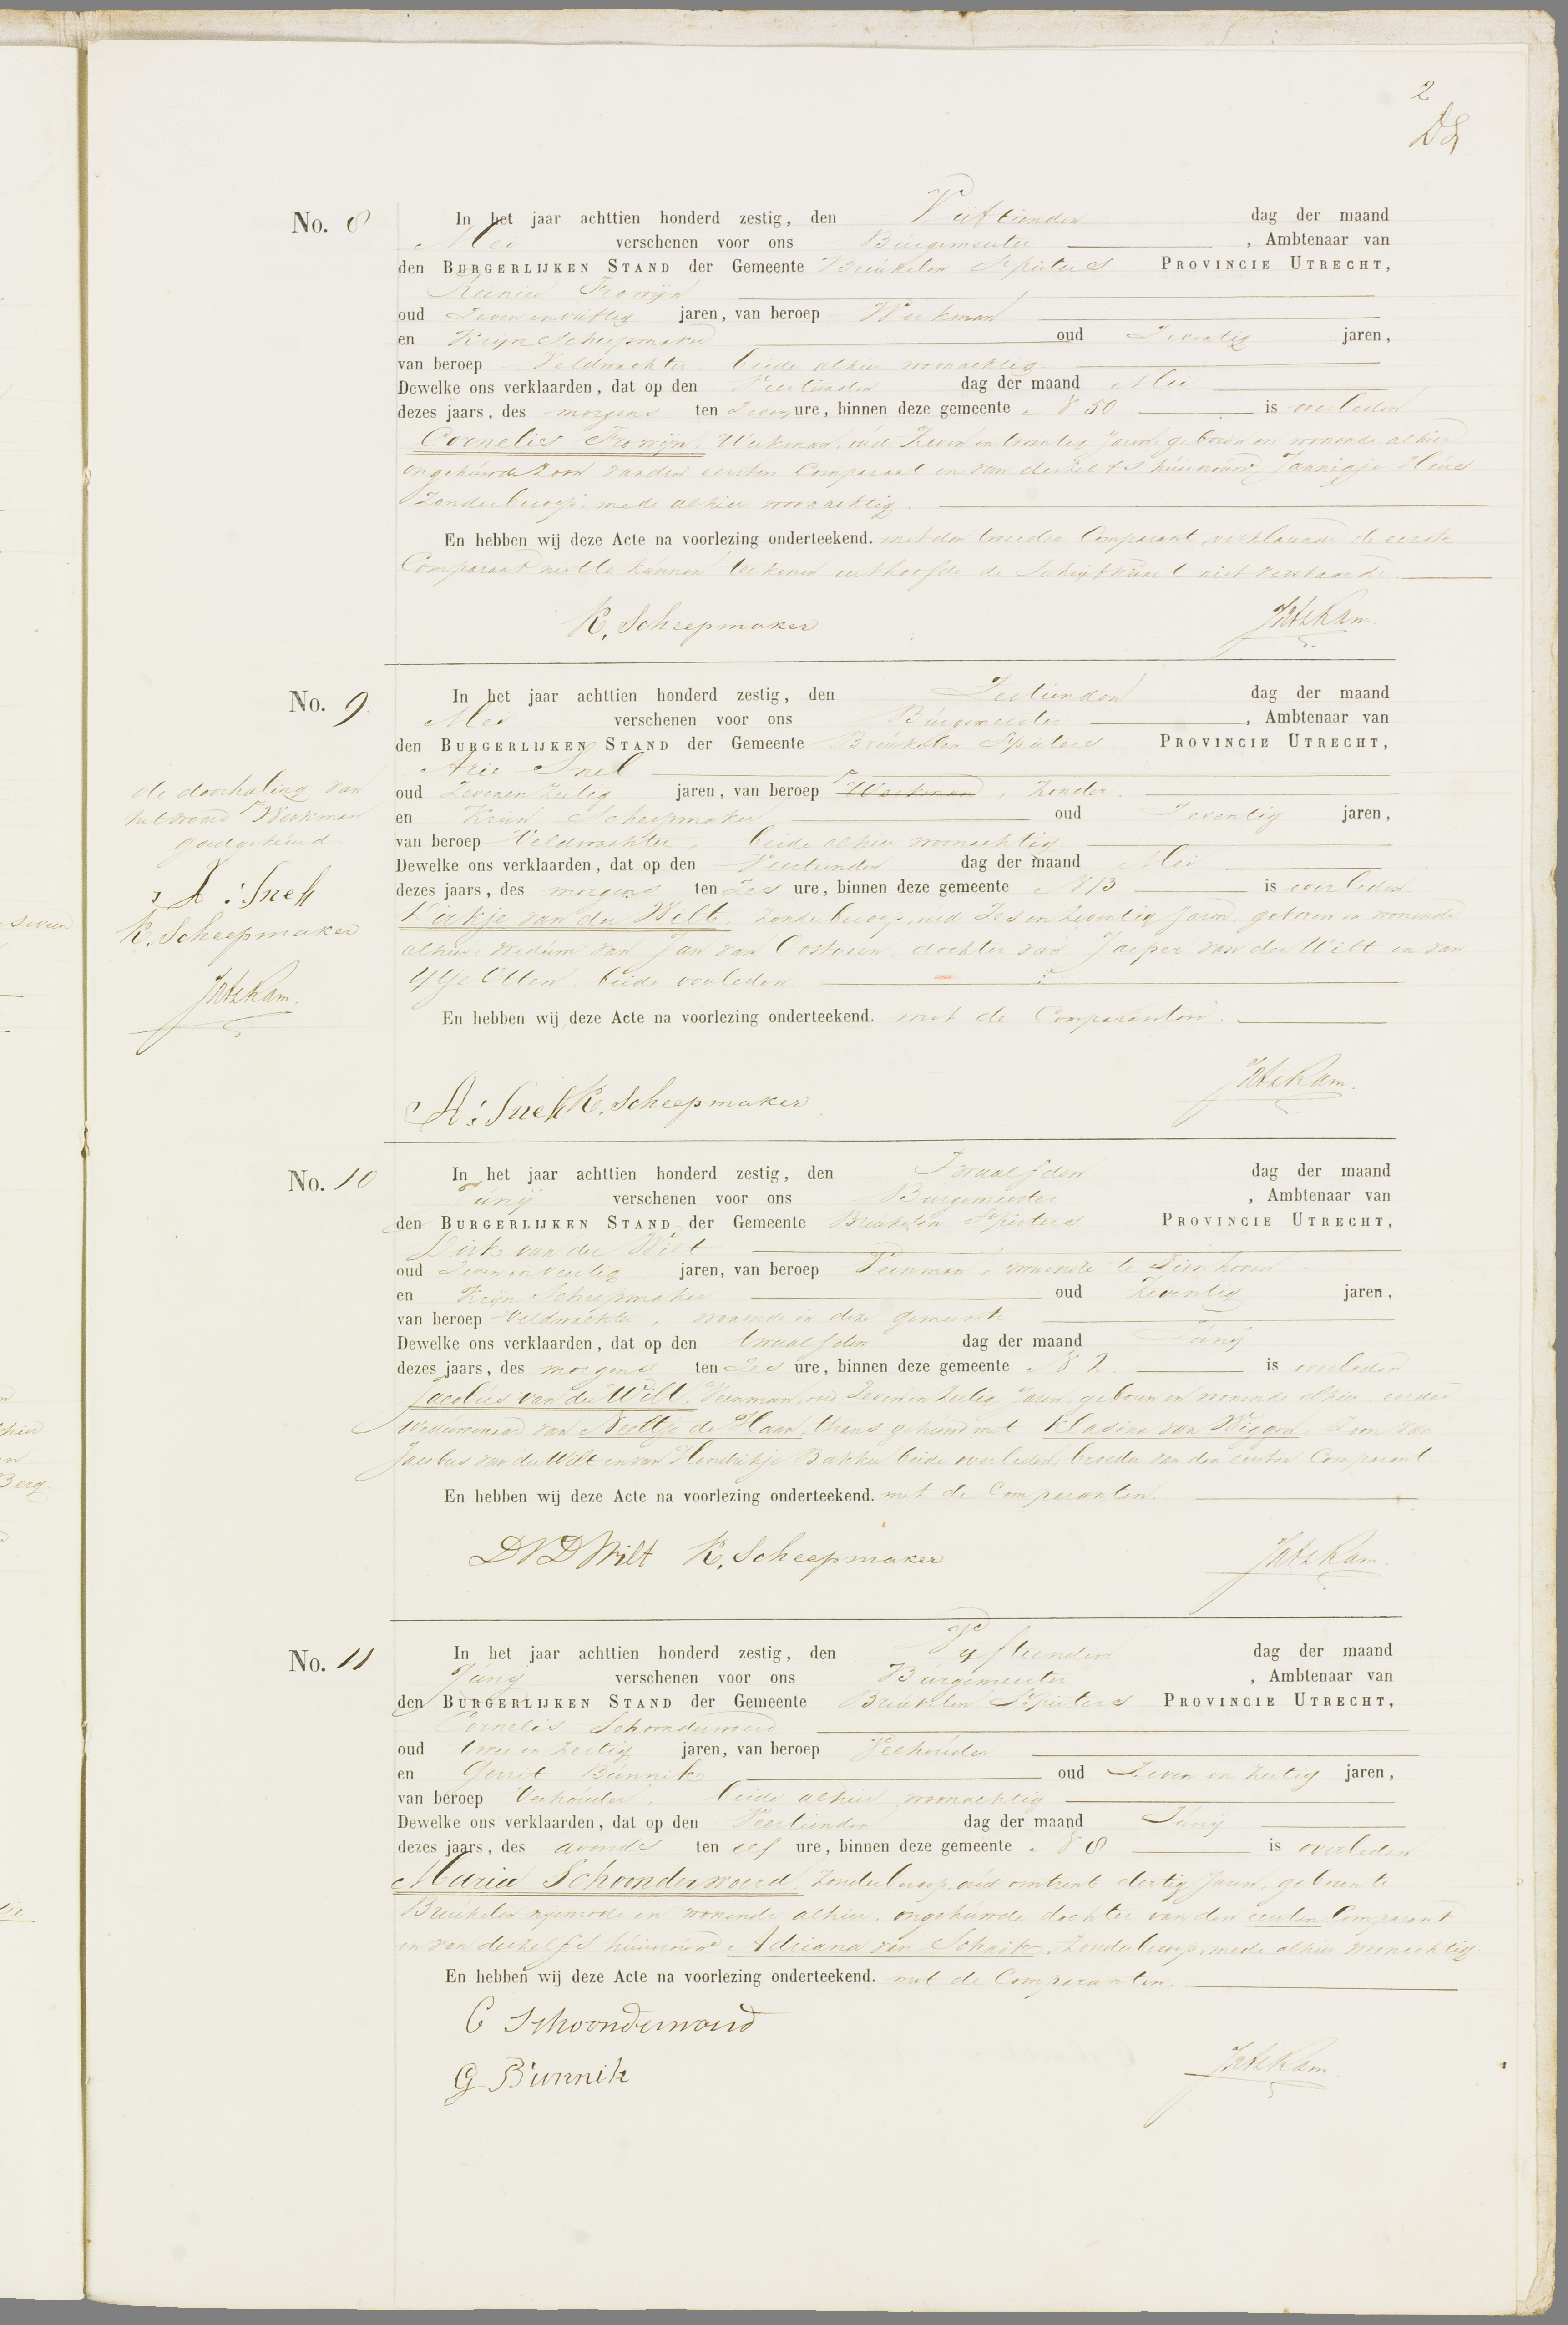 2
No. 8
In het jaar achttien honderd zestig, den Vijftienden dag der maand
Mei verschenen voor ons Burgemeester , Ambtenaar van
den Burgerlijken Stand der Gemeente Breukelen St pieters Provincie Utrecht,
Reinier Frowijn
oud Zevenenvijftig jaren, van beroep Werkman
en Krijn Scheepmaker oud Zeventig jaren,
van beroep Veldwachter, beide alhier woonachtig
Dewelke ons verklaarden, dat op den Veertienden dag der maand Mei
dezes jaars, des morgens ten Zeven ure, binnen deze gemeente N 50 is overleden
Cornelis Frowijn, Werkman, oud Zeven en twintig Jaren, geboren en wonende alhier
ongehuwde Zoon van den eersten Comparant en van deszelfs huisvrouw Jannigje
Zonder beroep, mede alhier woonachtig.
En hebben wij deze Acte na voorlezing onderteekend. met den tweeden Comparant, verklarende de eerste
Comparant niet te kunnen teekenen uit hoofde de Schrijfkunst niet verstaande
K, Scheepmaker
No. 9
In het jaar achttien honderd zestig, den Zestienden dag der maand
Mei verschenen voor ons Burgemeester , Ambtenaar van
den Burgerlijken Stand der Gemeente Breukelen St pieters Provincie Utrecht,
Arie Snel
oud Zevenenzestig jaren, van beroep Werkman, Zonder.
en Krijn Scheepmaker oud Zeventig jaren,
van beroep Veldwachter, beide alhier woonachtig
Dewelke ons verklaarden, dat op den Veertienden dag der maand Mei
dezes jaars, des morgens ten Zes ure, binnen deze gemeente N 13 is overleden
Dirkje van der Wilt, Zonder beroep, oud Zes en Zeventig Jaren, geboren en wonende
alhier, weduwe van Jan van Oostveen, dochter van Jasper van der Wilt en van
beide overleden
En hebben wij deze Acte na voorlezing onderteekend. met de Comparanten.
A: Snel K, Scheepmaker
de doorhaling van
het woord Werkman
goedgekeurd.
A: Snel
K, Scheepmaker
No. 10
In het jaar achttien honderd zestig, den Twaalfden dag der maand
Junij verschenen voor ons Burgemeester , Ambtenaar van
den Burgerlijken Stand der Gemeente Breukelen St pieters Provincie Utrecht,
Dirk van der Wilt
oud Zeven en veertig jaren, van beroep Veenman, wonende te Tienhoven
en Krijn Scheepmaker oud Zeventig jaren,
van beroep Veldwachter, wonende in deze gemeente
Dewelke ons verklaarden, dat op den twaalfden dag der maand Junij
dezes jaars, des morgens ten Zes ure, binnen deze gemeente N 2 is overleden
Jacobus van der Wilt, Veenman, oud Zeven en Zestig Jaren, geboren en wonende alhier, eerder
weduwenaar van Neeltje de Haan, thans gehuwd met Klasina van Wiggen, Zoon van
Jacobus van der Wilt en van Hendrikje Bakker beide overleden, broeder van den eersten Comparant
En hebben wij deze Acte na voorlezing onderteekend. met de Comparanten.
D V D Wilt K, Scheepmaker
No. 11
In het jaar achttien honderd zestig, den Vijftienden dag der maand
Junij verschenen voor ons Burgemeester , Ambtenaar van
den Burgerlijken Stand der Gemeente Breukelen St pieters Provincie Utrecht,
Cornelis Schoonderwoerd
oud twee en zestig jaren, van beroep Veehouder
en Gerrit Bunnik oud Zeven en Zestig jaren,
van beroep Veehouder, beide alhier woonachtig
Dewelke ons verklaarden, dat op den Veertienden dag der maand Junij
dezes jaars, des avonds ten elf ure, binnen deze gemeente N 8 is overleden
Maria Schoonderwoerd, Zonder beroep, oud omtrent dertig Jaren, geboren te
Breukelen nijenrode en wonende alhier, ongehuwde dochter van den eersten Comparant
en van deszelfs huisvrouw Adriana van Schaik, Zonder beroep, mede alhier woonachtig.
En hebben wij deze Acte na voorlezing onderteekend. met de Comparanten.
C Schoonderwoerd
G Bunnik